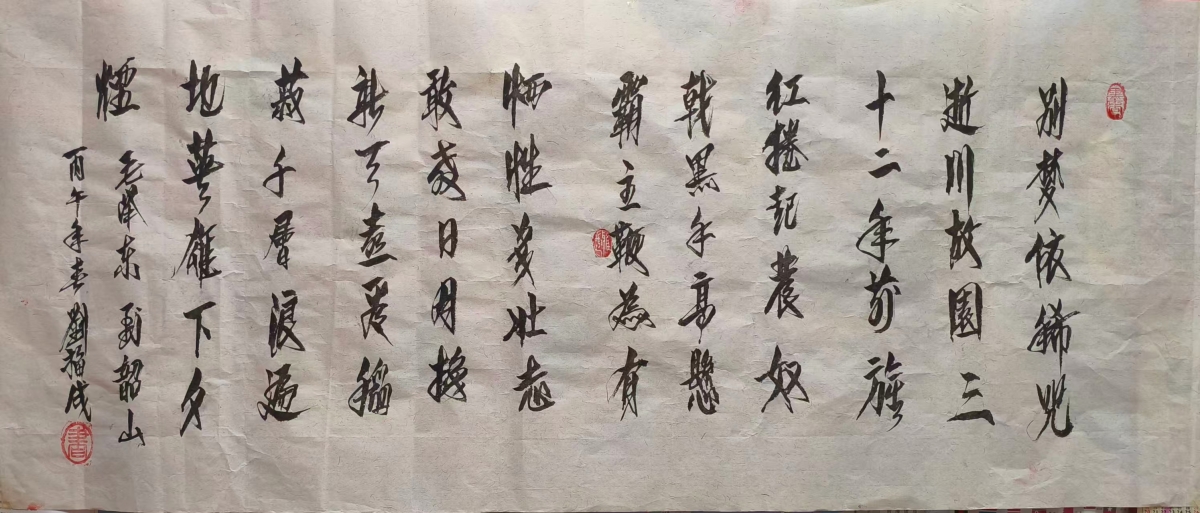 别梦依稀咒
逝川故園三
十二年前旗
红捲起農奴
戟黑手高懸
霸主鞭為有
牺牲多壮志
敢教日月換
新天喜看稻
菽千層浪遍
地英雄下夕
煙
毛澤东 到韶山
丙午年春 劉福成